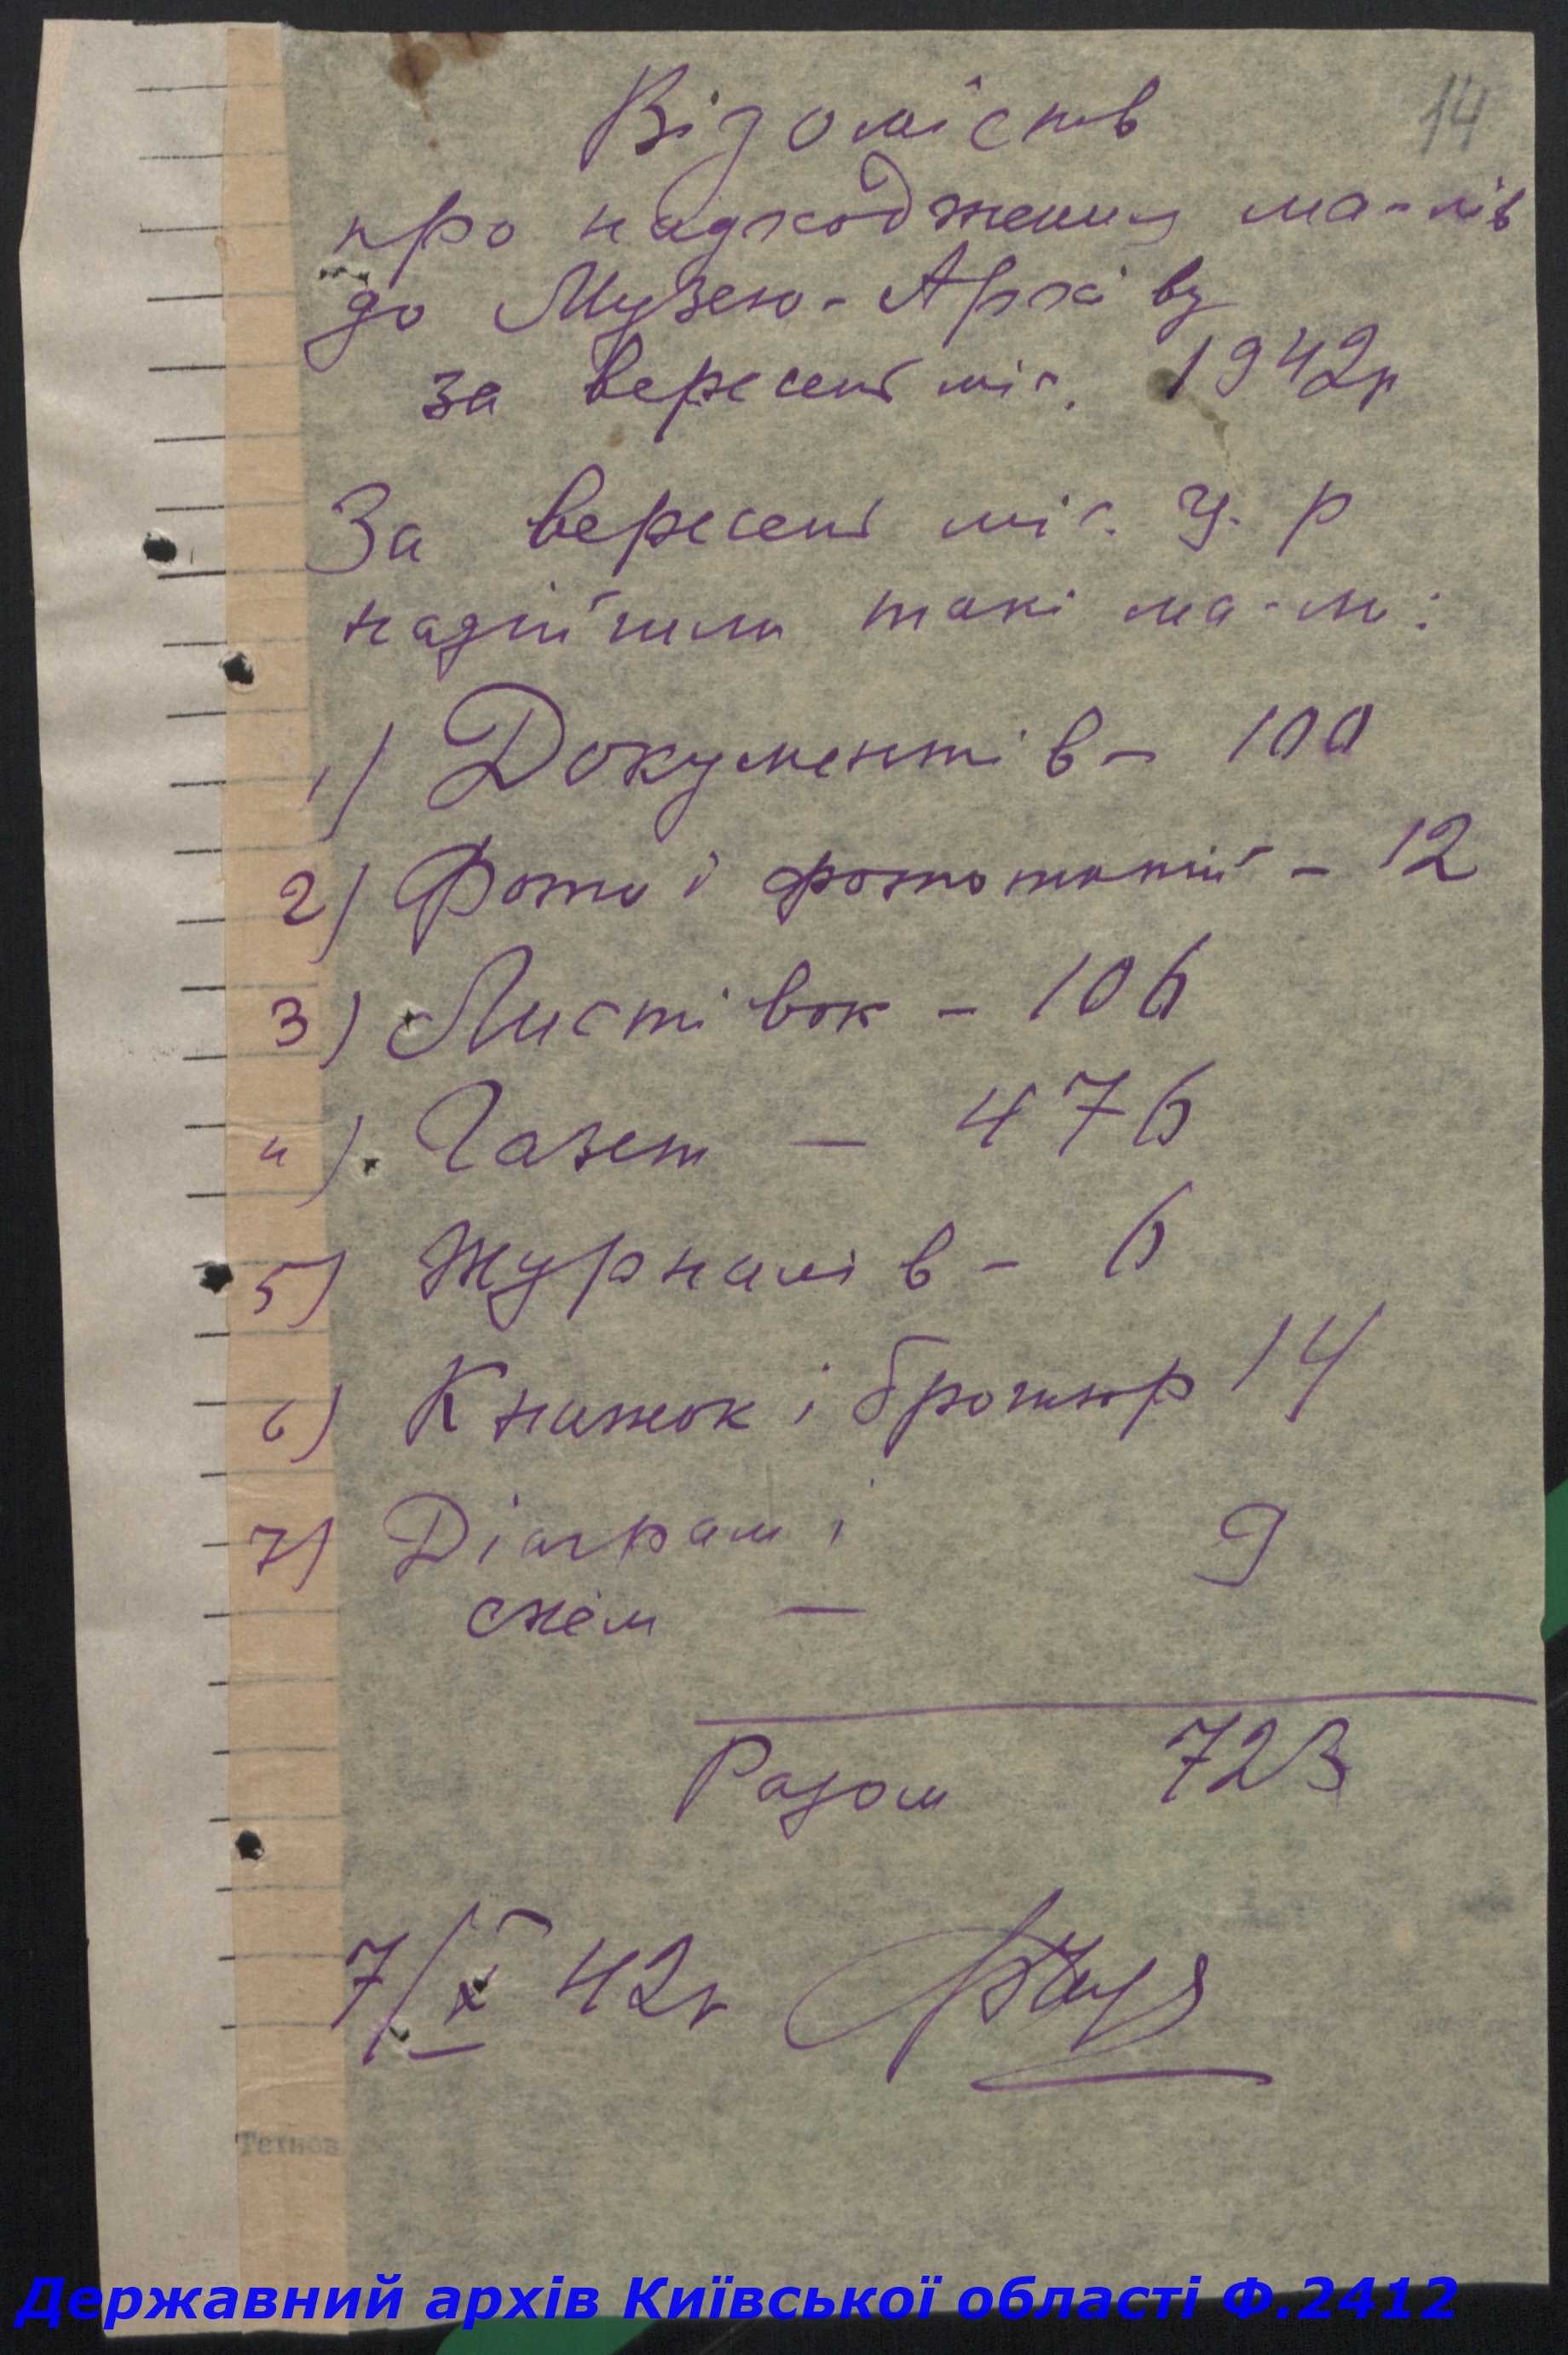 14
Відомість
про надходження ма-лів
до Музею-Архіву
за вересень міс. 1942р
За вересень міс. ц. р
надійшли такі ма-ли:
1) Документів - 100
2) Фото і фотокопій - 12
3) Листівок - 106
4) Газет - 476
5) Журналів - 6
6) Книжок і брошюр 14
7) Діаграм і 9
схем -
Разом 723
7/X 42р
Технов
Державний архів Київської області Ф.2412